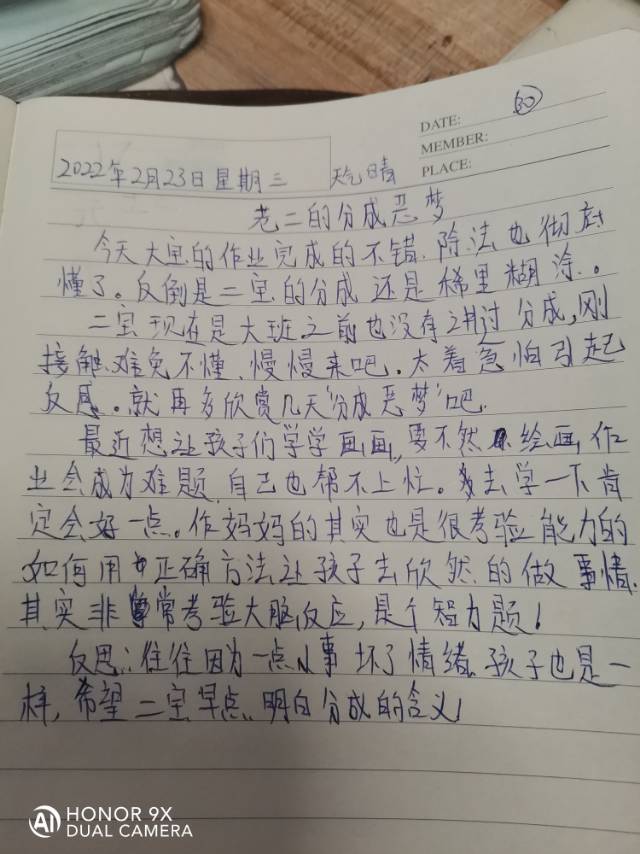 DATE: 30
MEMBER:
PLACE:
2022年2月23日星期三 天气晴
老二的分成恶梦
今天大宝的作业完成的不错、除法也彻底
懂了。反倒是二宝的分成还是稀里糊涂。
二宝现在是大班之前也没有讲过分成,刚
接触、难免不懂、慢慢来吧。太着急怕引起
反感。就再多欣赏几天"分成恶梦"吧.
最近想让孩子们学学画画,要不然绘画作
业会成为难题、自己也帮不上忙。去学一下肯
定会好一点。作妈妈的其实也是很考验能力的
如何用正确方法让孩子去欣然的做事情、
其实非常考验大脑反应,是个智力题!
反思:往往因为一点小事坏了情绪、孩子也是一
样,希望二宝早点、明白分成的含义!
AI HONOR 9X
DUAL CAMERA